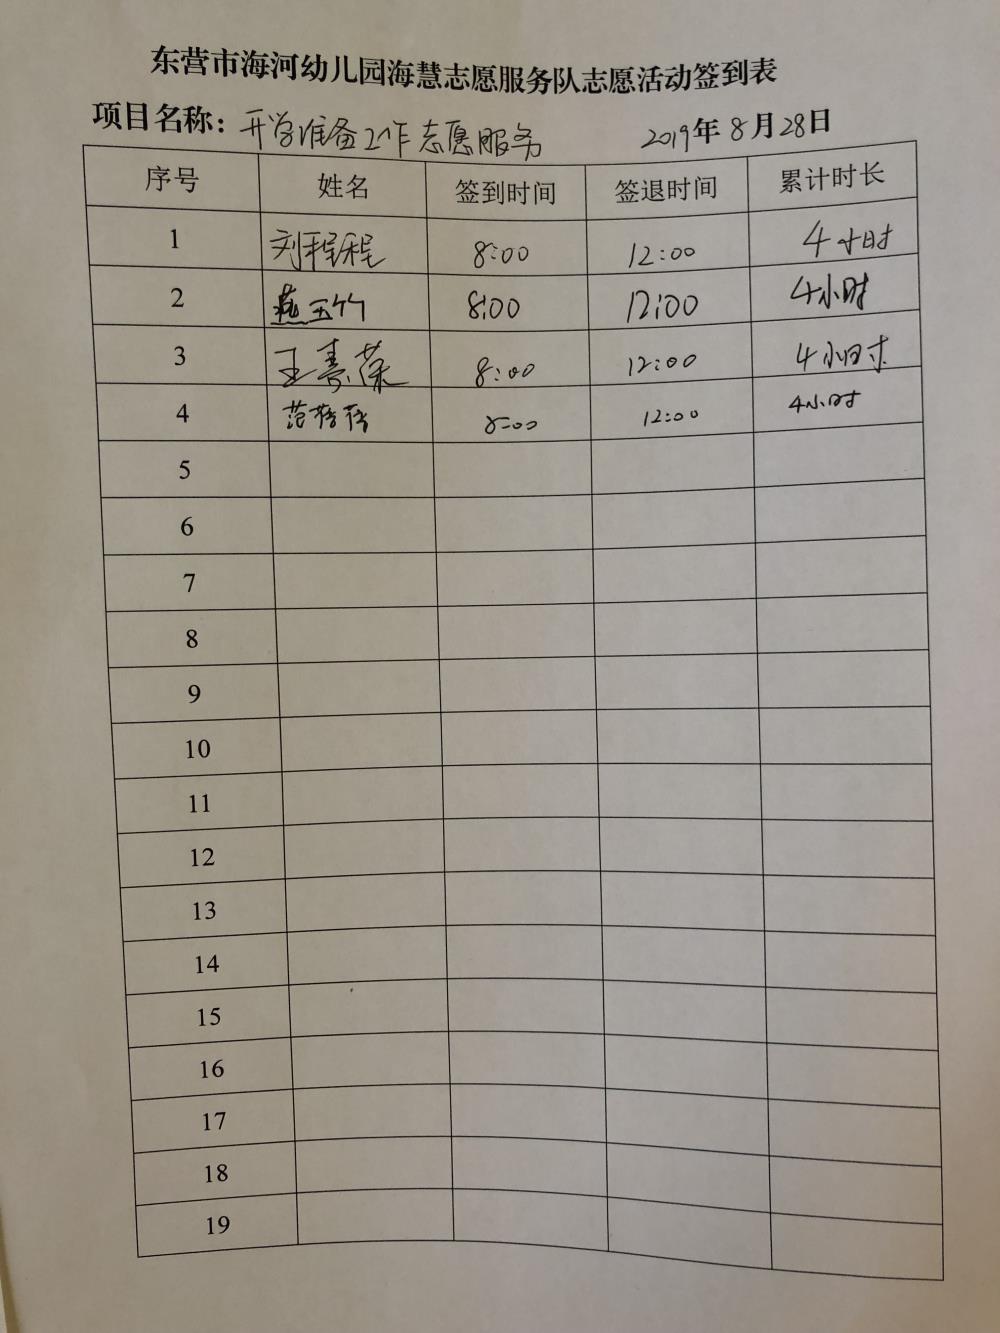 东营市海河幼儿园海慧志愿服务队志愿活动签到表
项目名称：开学准备工作志愿服务 2019年8月28日
序号 姓名 签到时间 签退时间 累计时长
1 刘程程 8:00 12:00 4小时
2 燕玉竹 8:00 12:00 4小时
3 王素荣 8:00 12:00 4小时
4 范蓓蓓 8:00 12:00 4小时
5
6
7
8
9
10
11
12
13
14
15
16
17
18
19